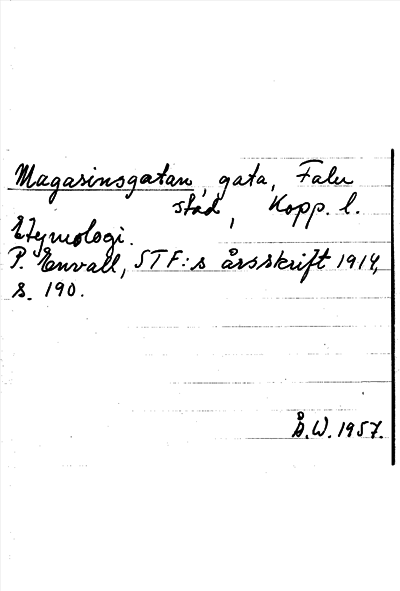 Magasinsgatan, gata, Falu
stad, Kopp. l.
Etymologi.
P. Envall, STF:s årsskrift 1914,
s. 190.
Å.W. 1957.